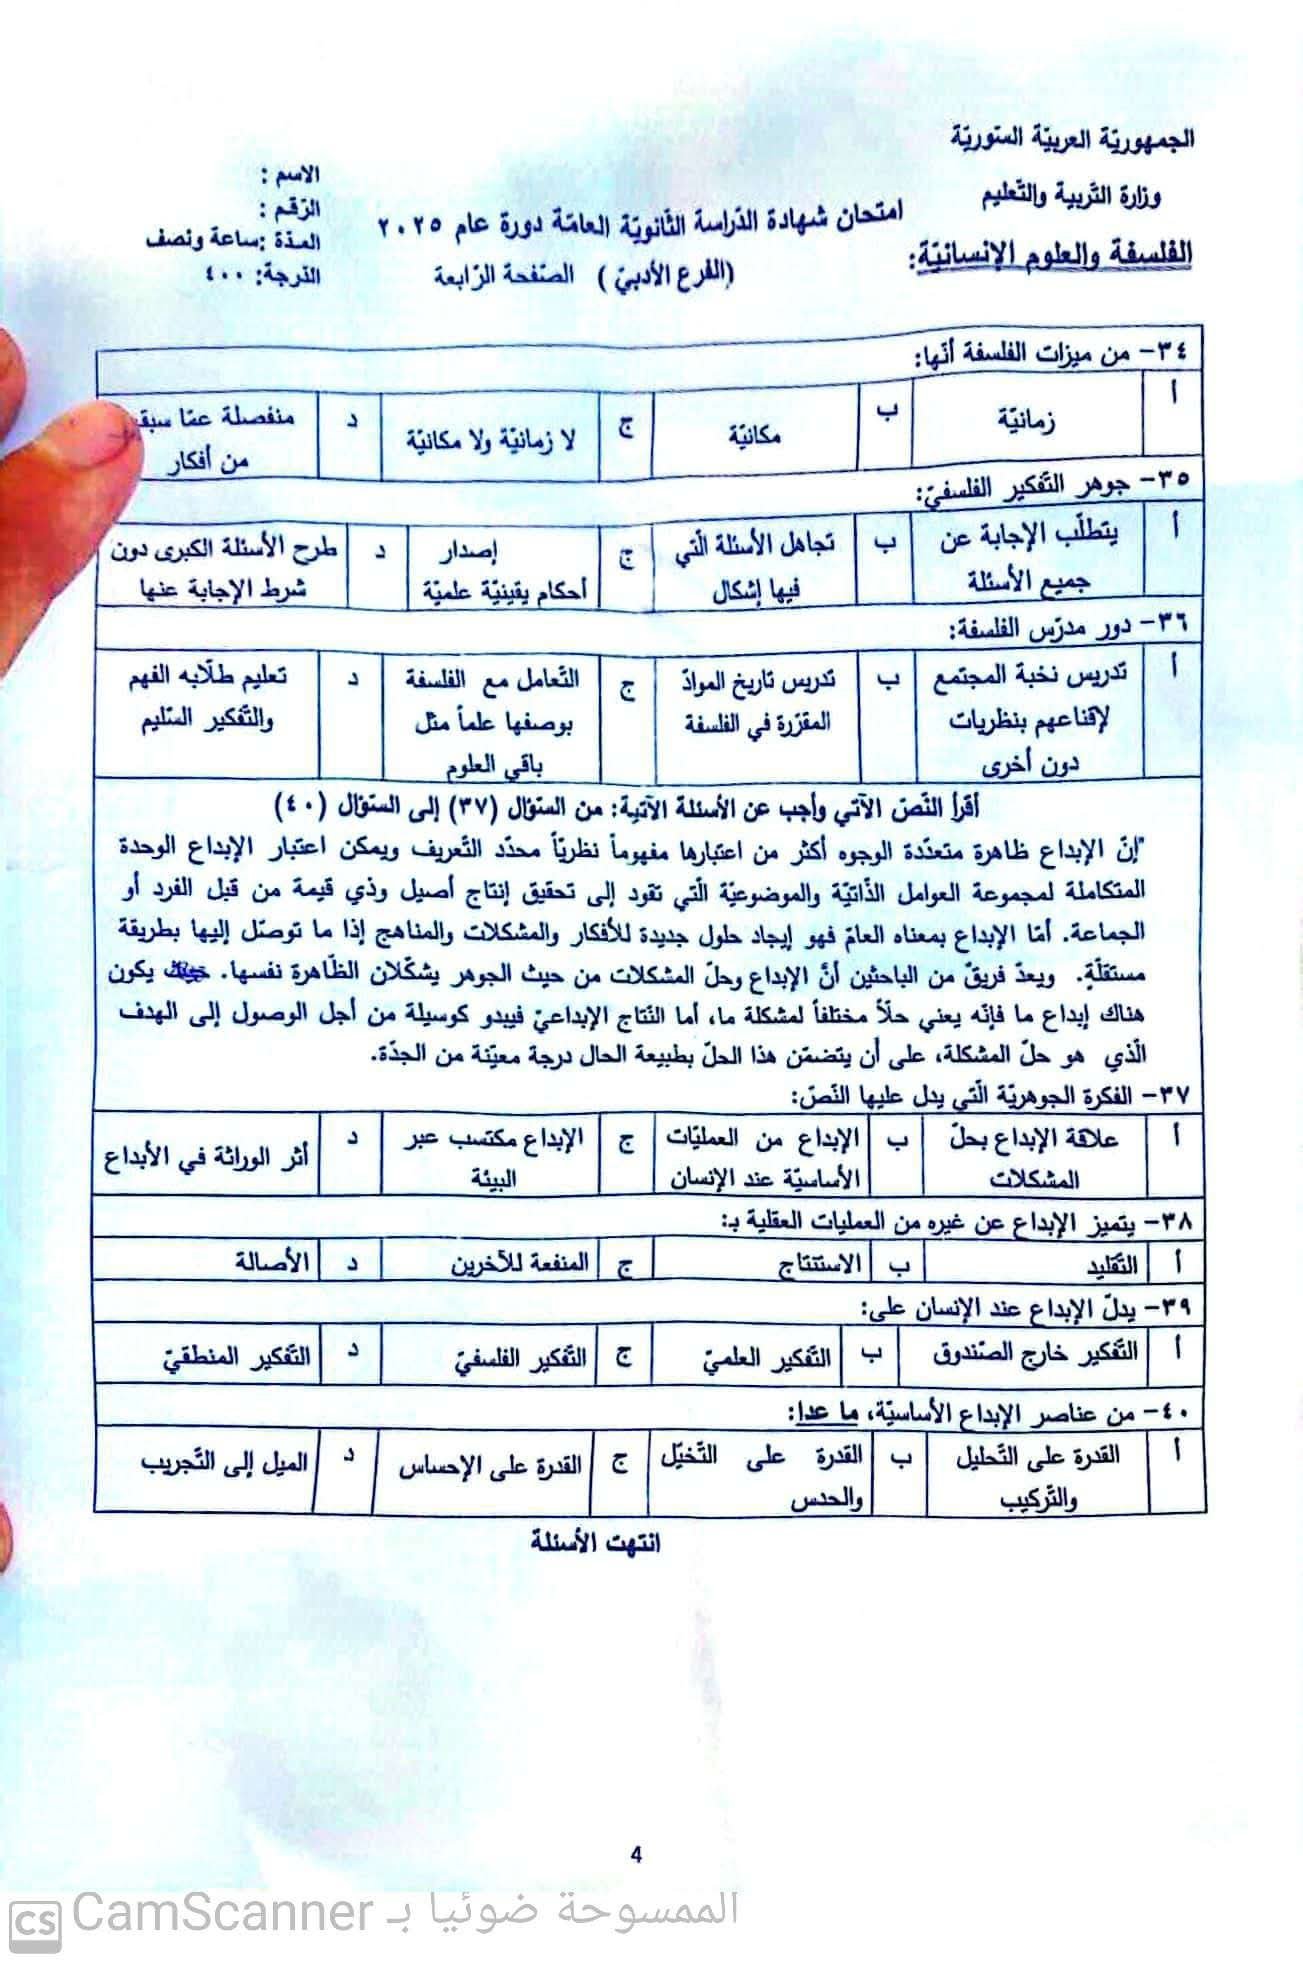 الجمهوريّة العربيّة السّوريّة
وزارة التّربية والتّعليم
الفلسفة والعلوم الإنسانيّة:
امتحان شهادة الدّراسة الثّانويّة العامّة دورة عام ٢٠٢٥
(الفرع الأدبيّ) الصّفحة الرّابعة
الاسم :
الرّقم :
المدّة :ساعة ونصف
الدّرجة: ٤٠٠
٣٤- من ميزات الفلسفة أنّها:
أ زمانيّة ب مكانيّة ج لا زمانيّة ولا مكانيّة د منفصلة عمّا سبقه
من أفكار
٣٥- جوهر التّفكير الفلسفيّ:
أ يتطلّب الإجابة عن ب تجاهل الأسئلة الّتي ج إصدار د طرح الأسئلة الكبرى دون
جميع الأسئلة فيها إشكال أحكام يقينيّة علميّة شرط الإجابة عنها
٣٦- دور مدرّس الفلسفة:
أ تدريس نخبة المجتمع ب تدريس تاريخ الموادّ ج التّعامل مع الفلسفة د تعليم طلّابه الفهم
لإقناعهم بنظريات المقرّرة في الفلسفة بوصفها علماً مثل والتّفكير السّليم
دون أخرى باقي العلوم
أقرأ النّصّ الآتي وأجب عن الأسئلة الآتية: من السّؤال (٣٧) إلى السّؤال (٤٠)
"إنّ الإبداع ظاهرة متعدّدة الوجوه أكثر من اعتبارها مفهوماً نظريّاً محدّد التّعريف ويمكن اعتبار الإبداع الوحدة
المتكاملة لمجموعة العوامل الذّاتيّة والموضوعيّة الّتي تقود إلى تحقيق إنتاج أصيل وذي قيمة من قبل الفرد أو
الجماعة. أمّا الإبداع بمعناه العامّ فهو إيجاد حلول جديدة للأفكار والمشكلات والمناهج إذا ما توصّل إليها بطريقة
مستقلّةٍ. ويعدّ فريقٌ من الباحثين أنَّ الإبداع وحلّ المشكلات من حيث الجوهر يشكّلان الظّاهرة نفسها. يكون
هناك إبداع ما فإنّه يعني حلّاً مختلفاً لمشكلة ما، أما النّتاج الإبداعيّ فيبدو كوسيلة من أجل الوصول إلى الهدف
الّذي هو حلّ المشكلة، على أن يتضمّن هذا الحلّ بطبيعة الحال درجة معيّنة من الجدّة.
٣٧- الفكرة الجوهريّة الّتي يدل عليها النّصّ:
أ علاقة الإبداع بحلّ ب الإبداع من العمليّات ج الإبداع مكتسب عبر د أثر الوراثة في الأبداع
المشكلات الأساسيّة عند الإنسان البيئة
٣٨- يتميز الإبداع عن غيره من العمليات العقلية بـ:
أ التّقليد ب الاستنتاج ج المنفعة للآخرين د الأصالة
٣٩- يدلّ الإبداع عند الإنسان على:
أ التّفكير خارج الصّندوق ب التّفكير العلميّ ج التّفكير الفلسفيّ د التّفكير المنطقيّ
٤٠- من عناصر الإبداع الأساسيّة، ما عدا:
أ القدرة على التّحليل ب القدرة على التّخيّل ج القدرة على الإحساس د الميل إلى التّجريب
والتّركيب والحدس
انتهت الأسئلة
4
CS CamScanner الممسوحة ضوئيا بـ